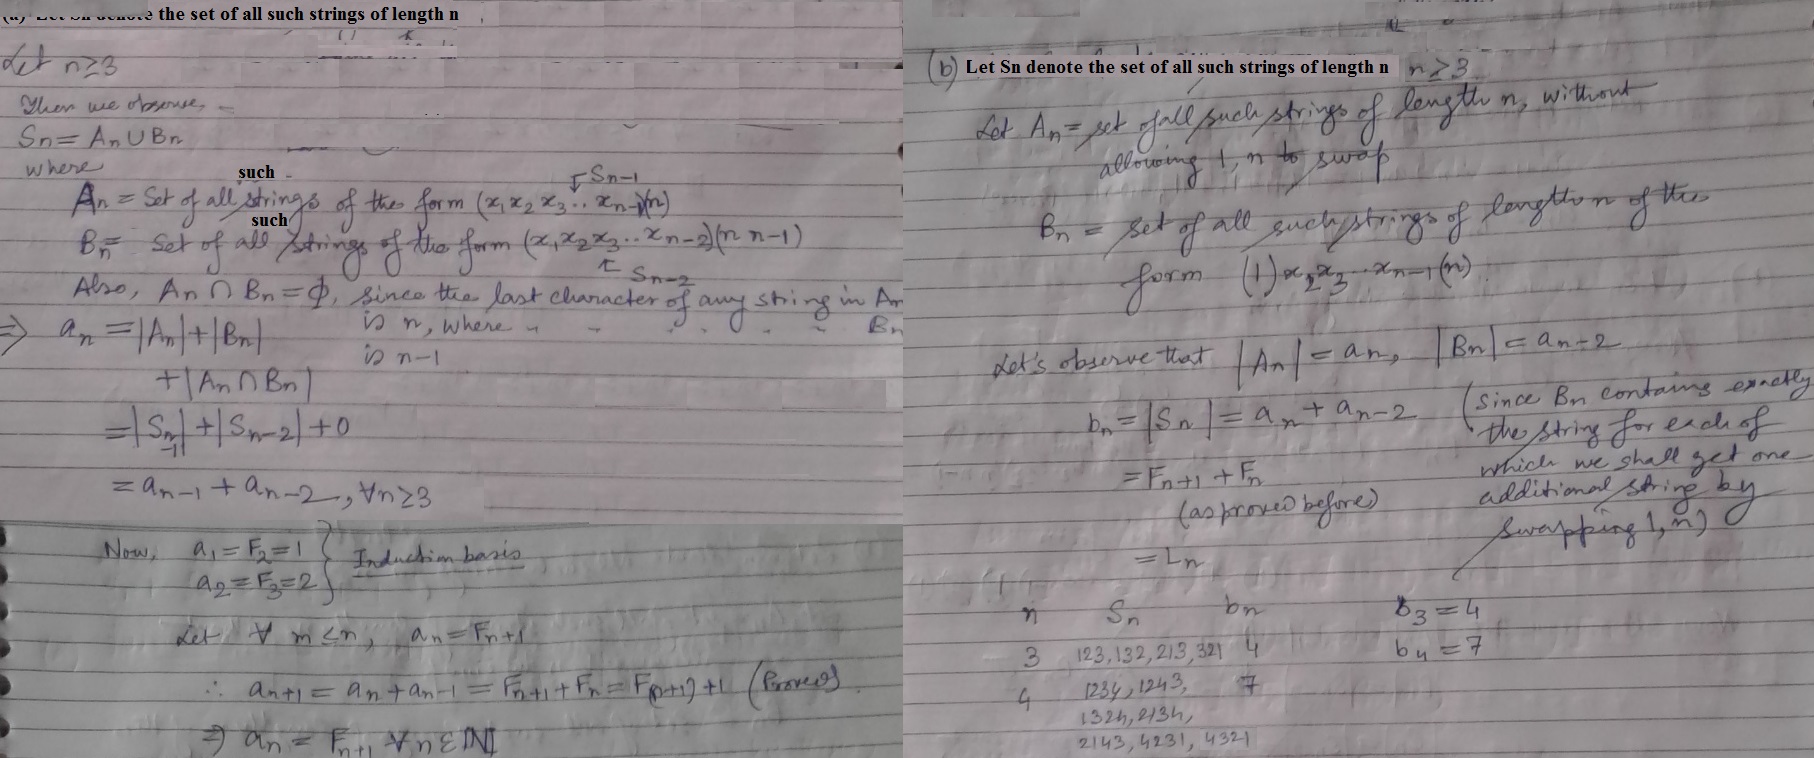 (a) Let Sn denote the set of all such strings of length n
Let n≥3
Then we observe,
Sn = An ∪ Bn
where
such
↓ Sn-1
An = Set of all strings of the form (x1 x2 x3 .. xn-1)(n)
such
Bn = Set of all strings of the form (x1 x2 x3 .. xn-2)(n n-1)
↑ Sn-2
Also, An ∩ Bn = φ, since the last character of any string in An
is n, where " " " " " Bn
is n-1
⇒ an = |An| + |Bn|
+ |An ∩ Bn|
= |Sn-1| + |Sn-2| + 0
= an-1 + an-2, ∀n≥3
Now, a1 = F2 = 1 } Induction basis
a2 = F3 = 2
Let ∀ m ≤ n, an = Fn+1
∴ an+1 = an + an-1 = Fn+1 + Fn = F(n+1)+1 (Proved)
⇒ an = Fn+1 ∀ n ∈ IN
(b) Let Sn denote the set of all such strings of length n n≥3
Let An = set of all such strings of length n, without
allowing 1, n to swap
Bn = set of all such strings of length n of the
form (1) x2 x3 ... xn-1 (n)
Let's observe that |An| = an, |Bn| = an-2
bn = |Sn| = an + an-2
(Since Bn contains exactly
the string for each of
which we shall get one
additional string by
swapping 1, n)
= Fn+1 + Fn
(as proved before)
= Ln
n Sn bn
3 123, 132, 213, 321 4
4 1234, 1243, 7
1324, 2134,
2143, 4231, 4321
b3 = 4
b4 = 7